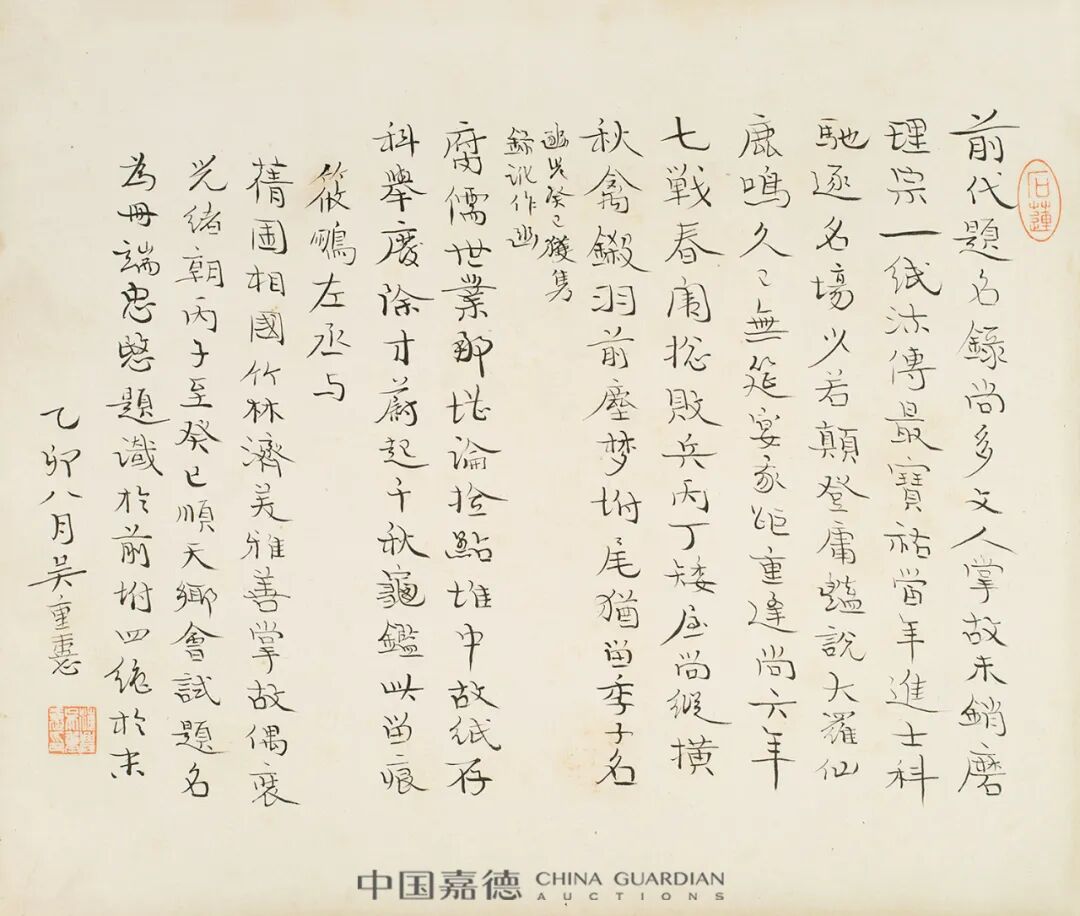 石蓮
前代題名錄尚多文人掌故未銷磨
理宗一紙流傳最寶祐當年進士科
馳逐名場以若顛登庸豔說大羅仙
鹿鳴久已無筵宴距重逢尚六年
七戰春闈總敗兵丙丁矮屋尚縱橫
秋禽鎩羽前塵夢坿尾猶留季子名
癸巳獲雋
錄訛作
腐儒世業那堪論撿點堆中故紙存
科舉廢除才蔚起千秋龜鑑此留痕
筱左丞与
相國竹林濟美雅善掌故偶裒
光緒朝丙子至癸巳順天鄉會試題名
為冊端忠愍題識於前坿四絕於末
乙卯八月吳重憙
中国嘉德 CHINA GUARDIAN
AUCTIONS